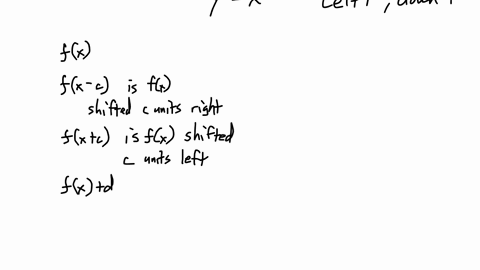 f(x)
f(x-c) is f(x)
shifted c units right
f(x+c) is f(x) shifted
c units left
f(x)+d